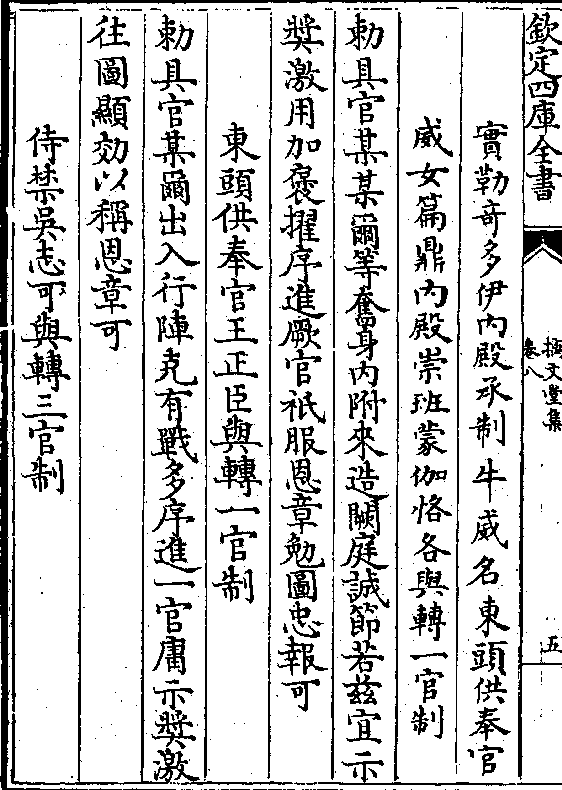 欽定四庫全書
摛文堂集
卷八
五
實勒竒多伊内殿承制牛威名東頭供奉官
威女篇鼎内殿崇班蒙伽恪各與轉一官制
勅具官某某爾等奮身内附來造闕庭誠節若兹宜示
奬激用加褒擢序進厥官祗服恩章勉圖忠報可
東頭供奉官王正臣與轉一官制
勅具官某爾出入行陣克有戰多序進一官庸示奬激
往圖顯効以稱恩章可
侍禁吳志可與轉三官制